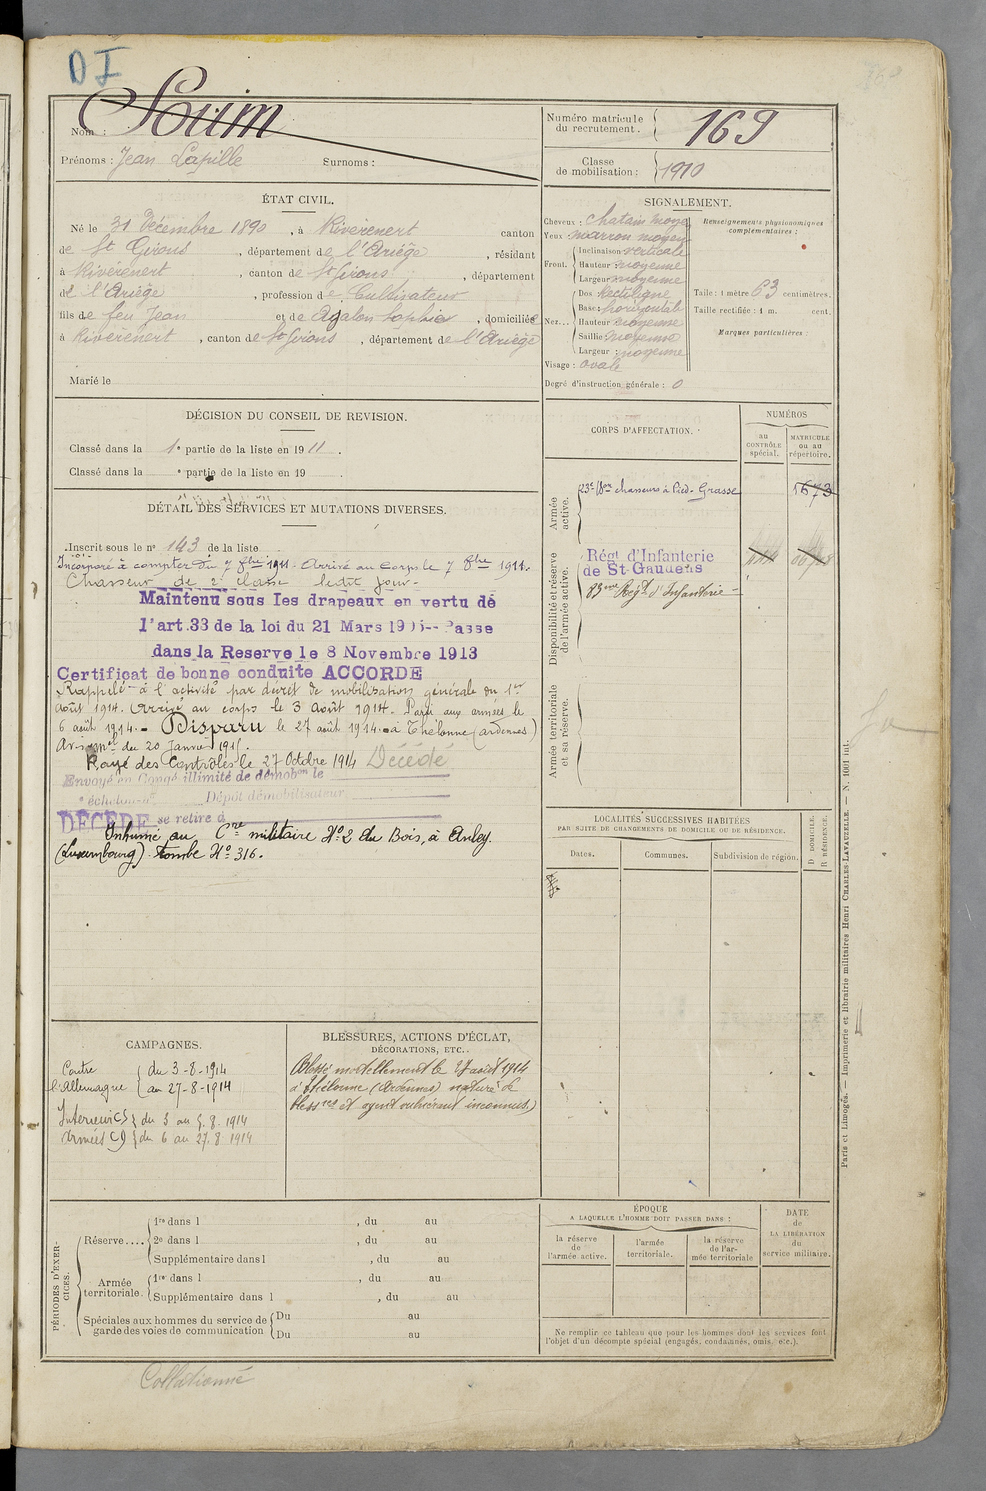 D I
360
Nom : Souim
Prénoms : Jean Surnoms :
Numéro matricule du recrutement. 169
Classe de mobilisation : 1910
ÉTAT CIVIL.
Né le 31 Décembre 1890, à Rivèrenert canton
de St Girons, département de l'Ariège, résidant
à Rivèrenert, canton de St Girons, département
de l'Ariège, profession de Cultivateur
fils de feu Jean et de Agalon Sophie, domiciliée
à Rivèrenert, canton de St Girons, département de l'Ariège
Marié le
SIGNALEMENT.
Cheveux : chatain moyen
Yeux : marron moyen
Front. Inclinaison verticale
Hauteur moyenne
Largeur moyenne
Nez... Dos Rectiligne
Base : horizontale
Hauteur moyenne
Saillie moyenne
Largeur : moyenne
Visage : ovale
Degré d'instruction générale : 0
Renseignements physionomiques complémentaires :
Taille : 1 mètre 63 centimètres.
Taille rectifiée : 1 m. cent.
Marques particulières :
DÉCISION DU CONSEIL DE REVISION.
Classé dans la 1e partie de la liste en 1911.
Classé dans la e partie de la liste en 19 .
DÉTAIL DES SERVICES ET MUTATIONS DIVERSES.
Inscrit sous le no 143 de la liste
Incorporé à compter du 7 8bre 1911. Arrivé au Corps le 7 8bre 1911.
Chasseur de 2e classe ledit jour.
Maintenu sous les drapeaux en vertu de
l'art.33 de la loi du 21 Mars 1905-- Passe
dans la Reserve le 8 Novembre 1913
Certificat de bonne conduite ACCORDE
Rappelé à l'activité par décret de mobilisation générale du 1er
août 1914. Arrivé au corps le 3 août 1914. Parti aux armées le
6 août 1914. - Disparu le 27 août 1914 à Thélonne (ardennes)
Avis mel du 20 Janvier 1915.
Rayé des Contrôles le 27 Octobre 1914 Décédé
Envoyé en Congé illimité de démobon le
e échelon no Dépôt démobilisateur
DÉCÉDÉ se retire à
Inhumé au Cre militaire No 2 du Bois, à Anloy.
(Luxembourg). tombe No 316.
CORPS D'AFFECTATION.
NUMÉROS
au CONTRÔLE spécial.
MATRICULE ou au répertoire.
Armée active.
23e Bon chasseurs à Pied - Grasse 1673
Disponibilité et réserve de l'armée active.
Régt d'Infanterie
de St-Gaudens
83me Régt d'Infanterie -
Armée territoriale et sa réserve.
LOCALITÉS SUCCESSIVES HABITÉES
PAR SUITE DE CHANGEMENTS DE DOMICILE OU DE RÉSIDENCE.
Dates.
Communes.
Subdivision de région.
D DOMICILE.
R RÉSIDENCE.
CAMPAGNES.
Contre l'Allemagne { du 3-8-1914
au 27-8-1914
Intérieur CS { du 3 au 5.8.1914
Armées C) { du 6 au 27.8.1914
BLESSURES, ACTIONS D'ÉCLAT,
DÉCORATIONS, ETC..
Blessé mortellement le 27 août 1914
à Thélonne (Ardennes) nature de
blessres et agent vulnérant inconnus)
PÉRIODES D'EXERCICES.
Réserve.... 1re dans l , du au
2e dans l , du au
Supplémentaire dans l , du au
Armée territoriale. 1re dans l , du au
Supplémentaire dans l , du au
Spéciales aux hommes du service de garde des voies de communication Du au
Du au
ÉPOQUE
A LAQUELLE L'HOMME DOIT PASSER DANS :
la réserve de l'armée active.
l'armée territoriale.
la réserve de l'armée territoriale
DATE de LA LIBÉRATION du service militaire.
Ne remplir ce tableau que pour les hommes dont les services font
l'objet d'un décompte spécial (engagés, condamnés, omis, etc.).
Paris et Limoges. — Imprimerie et librairie militaires Henri CHARLES-LAVAUZELLE. — N. 1001 int.
Collationné